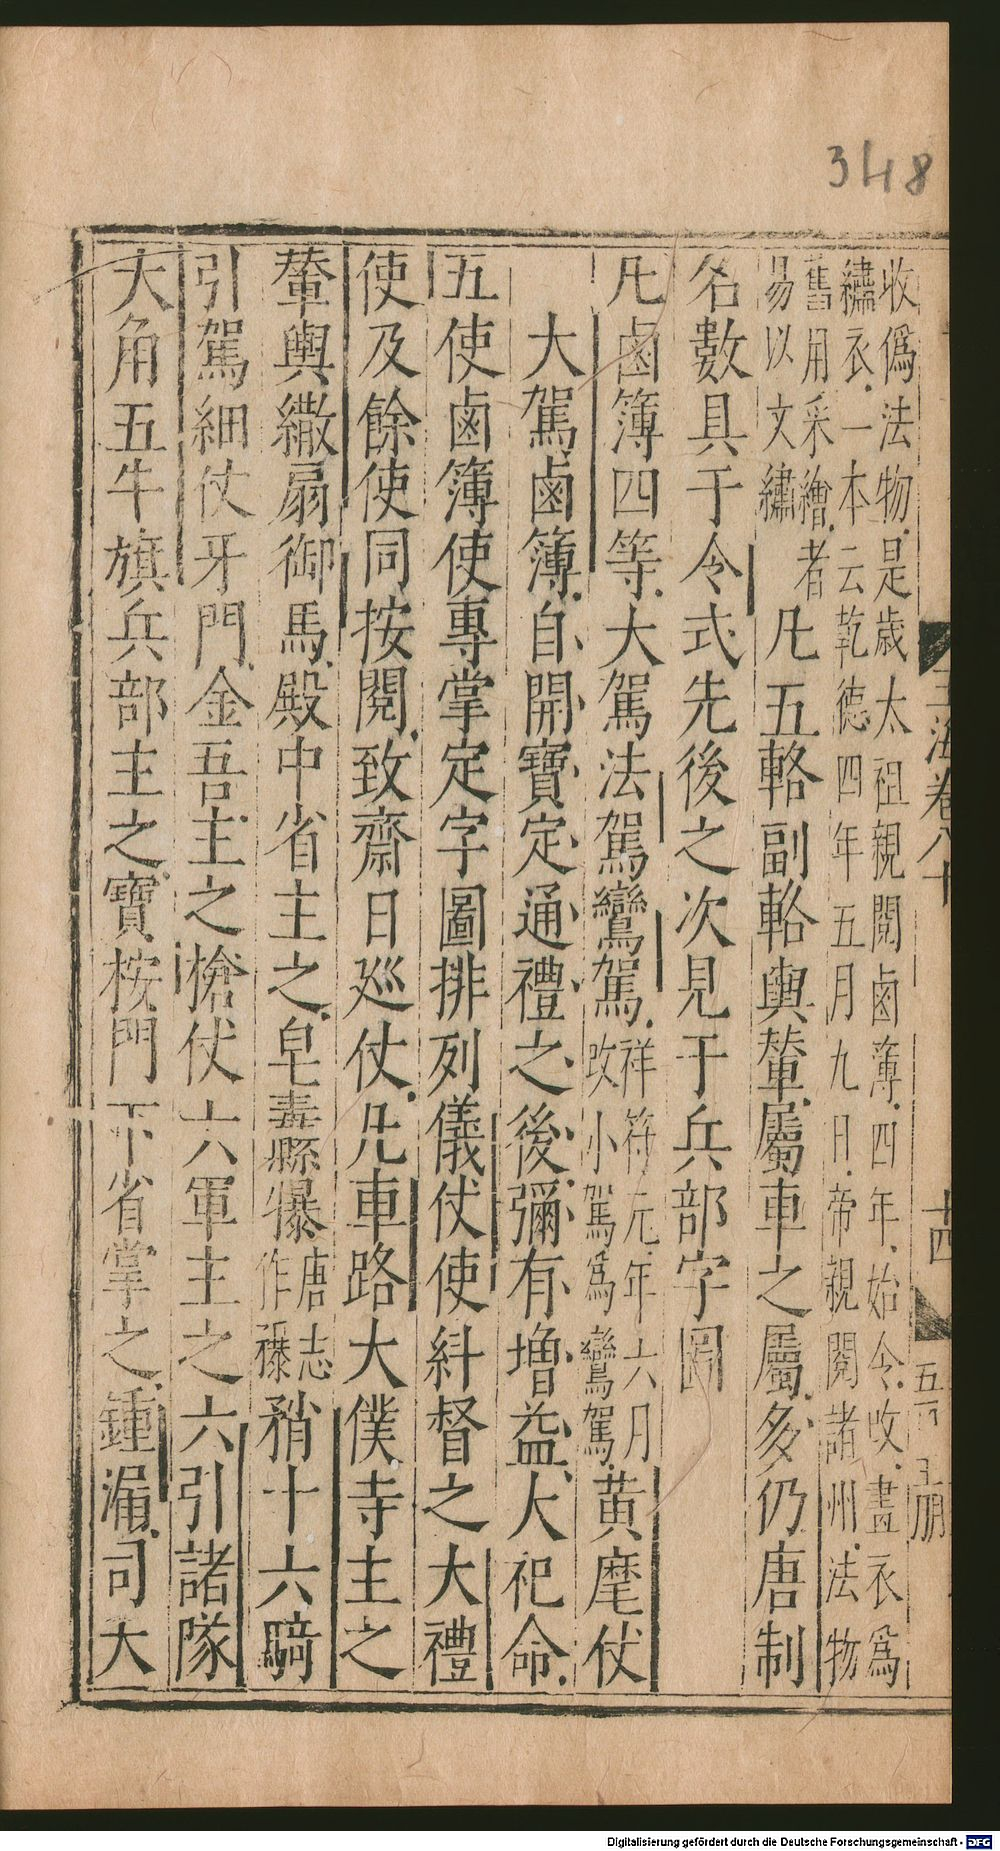 348
收僞法物是歲太祖親閱鹵薄四年始令改畫衣爲
繡衣一本云乾德四年五月九日帝親閱諸州法物
舊用采繪者
易以文繡
凡五輅副輅輿輦屬車之屬多仍唐制
名數具于令式先後之次見于兵部字圖
凡鹵簿四等大駕法駕鸞駕
祥符元年六月
改小駕爲鸞駕
黃麾仗
大駕鹵簿自開寶定通禮之後彌有增益大祀命
五使鹵簿使專掌定字圖排列儀仗使糾督之大禮
使及餘使同按閱致齋日廵仗凡車路大僕寺主之
輦輿繖扇御馬殿中省主之皁纛
唐志
作䂍
矟十六騎
引駕細仗牙門金吾主之槍仗六軍主之六引諸隊
大角五牛旗兵部主之寶桉門下省掌之鍾漏司天
玉海卷八十
十四
Digitalisierung gefördert durch die Deutsche Forschungsgemeinschaft - DFG